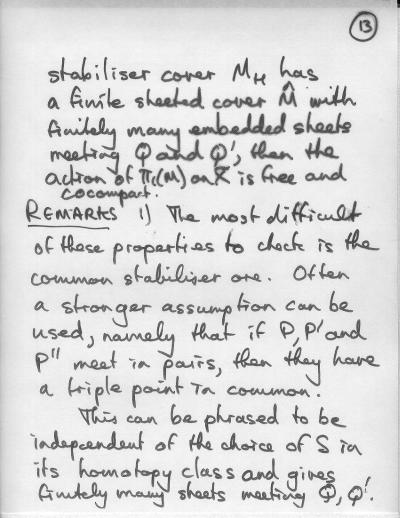 13
stabiliser cover M_H has
a finite sheeted cover M̂ with
finitely many embedded sheets
meeting Q and Q', then the
action of π₁(M) on X̃ is free and
cocompact.
REMARKS 1) The most difficult
of these properties to check is the
common stabiliser one. Often
a stronger assumption can be
used, namely that if P, P' and
P'' meet in pairs, then they have
a triple point in common.
This can be phrased to be
independent of the choice of S in
its homotopy class and gives
finitely many sheets meeting Q, Q'.